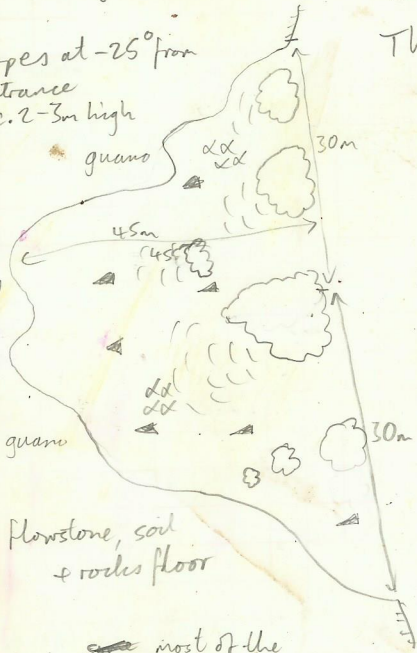 pes at -25° from
trance
c. 2-3m high
Th
guano
30m
45m
(45°
guano
30m
flowstone, soil
+ rocks floor
most of the